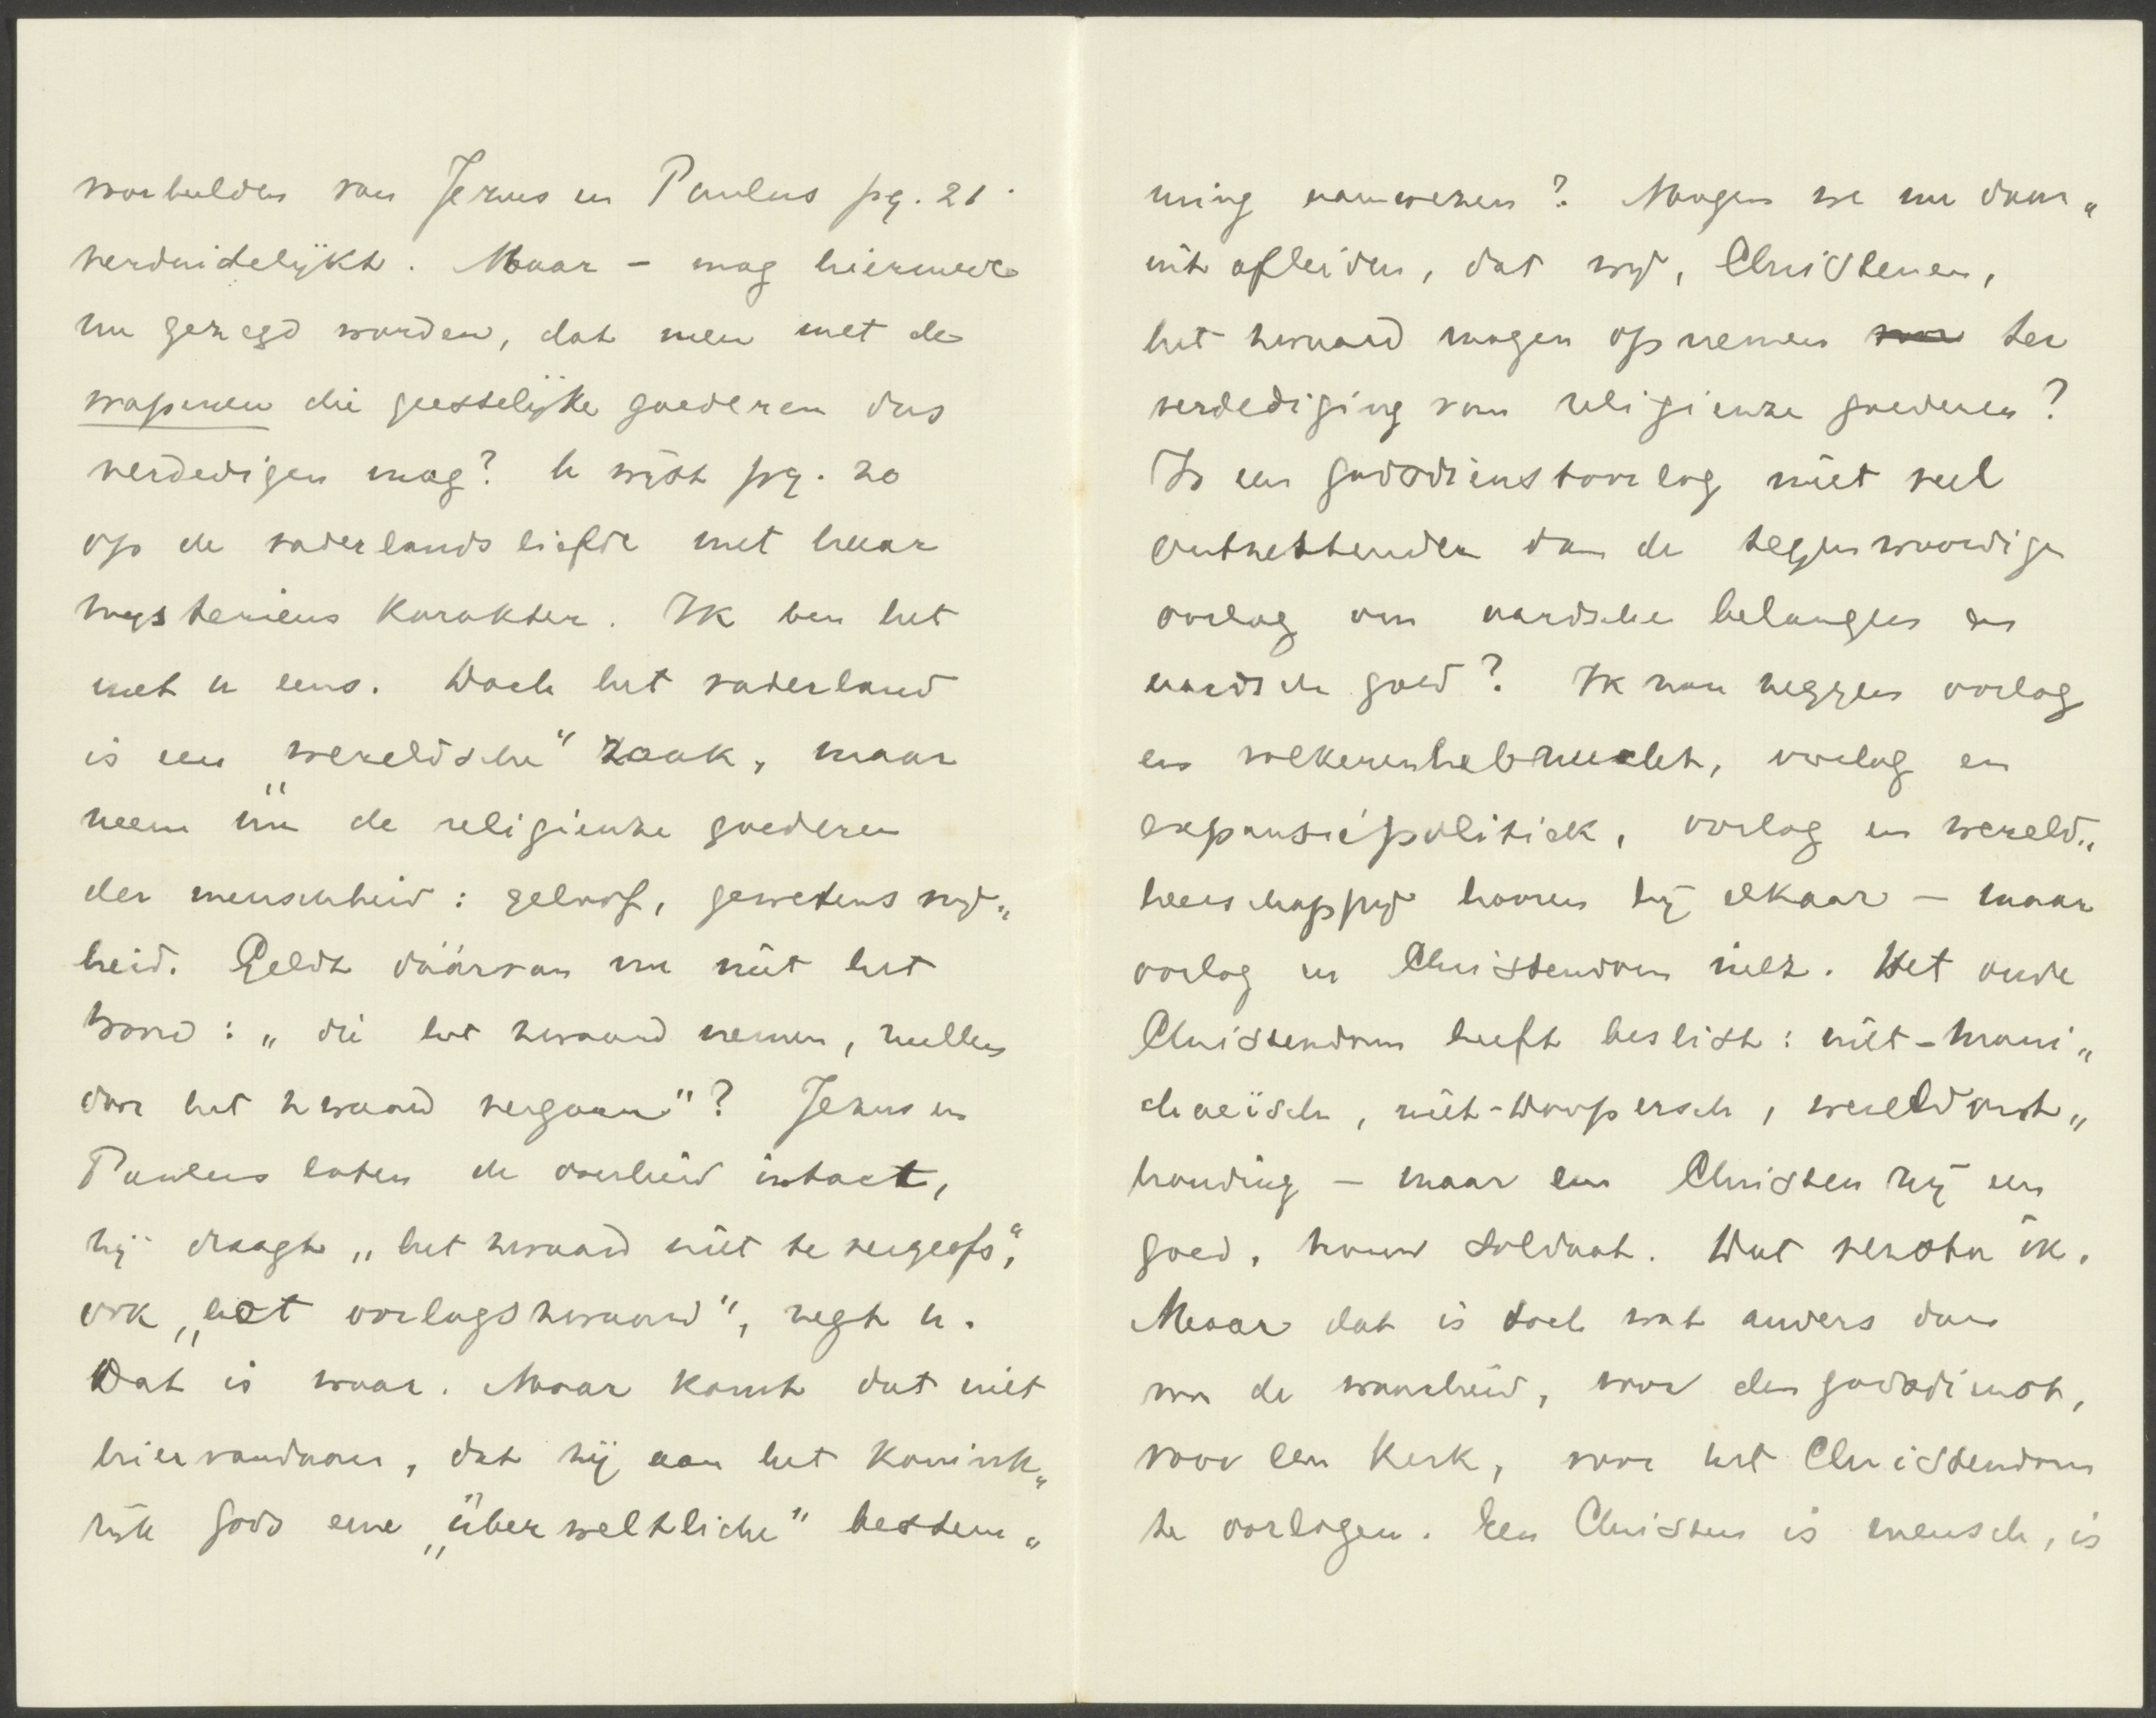 voorbeelden van Jezus en Paulus pg. 21
verduidelijkt. Maar – mag hiermede
nu gezegd worden, dat men met de
wapenen die geestelijke goederen dus
verdedigen mag? U wijst pg. 20
op de vaderlandsliefde met haar
mysterieus karakter. Ik ben het
met u eens. Doch het vaderland
is een „wereldsche" zaak, maar
neem nu de religieuze goederen
der menschheid: geloof, gewetensvrij„
heid. Geldt dáárvan nu niet het
woord: „die het zwaard nemen, zullen
door het zwaard vergaan"? Jezus en
Paulus laten de overheid intact,
zij draagt „het zwaard niet te vergeefs",
ook „het oorlogszwaard", zegt u.
Dat is waar. Maar komt dat niet
hiervandaan, dat zij aan het Konink„
rijk Gods eine „überweltliche" bestem„
ming aanwezen? Mogen we nu daar„
uit afleiden, dat wij, Christenen,
het zwaard mogen opnemen voor ter
verdediging van religieuze goederen?
Is een godsdienstoorlog niet veel
ontzettender dan de tegenwoordige
oorlog om aardsche belangen en
aardsch goed? Ik zou zeggen oorlog
en volkerenhebzucht, oorlog en
expansiepolitiek, oorlog en wereld„
heerschappij hooren bij elkaar – maar
oorlog en Christendom niet. Het oude
Christendom heeft beslist: niet-mani„
chaeïsch, niet-Doopersch, wereldont„
houding – maar een Christen zij een
goed, trouw soldaat. Dat versta ik.
Maar dat is toch wat anders dan
voor de waarheid, voor den godsdienst,
voor een Kerk, voor het Christendom
te oorlogen. Een Christen is mensch, is